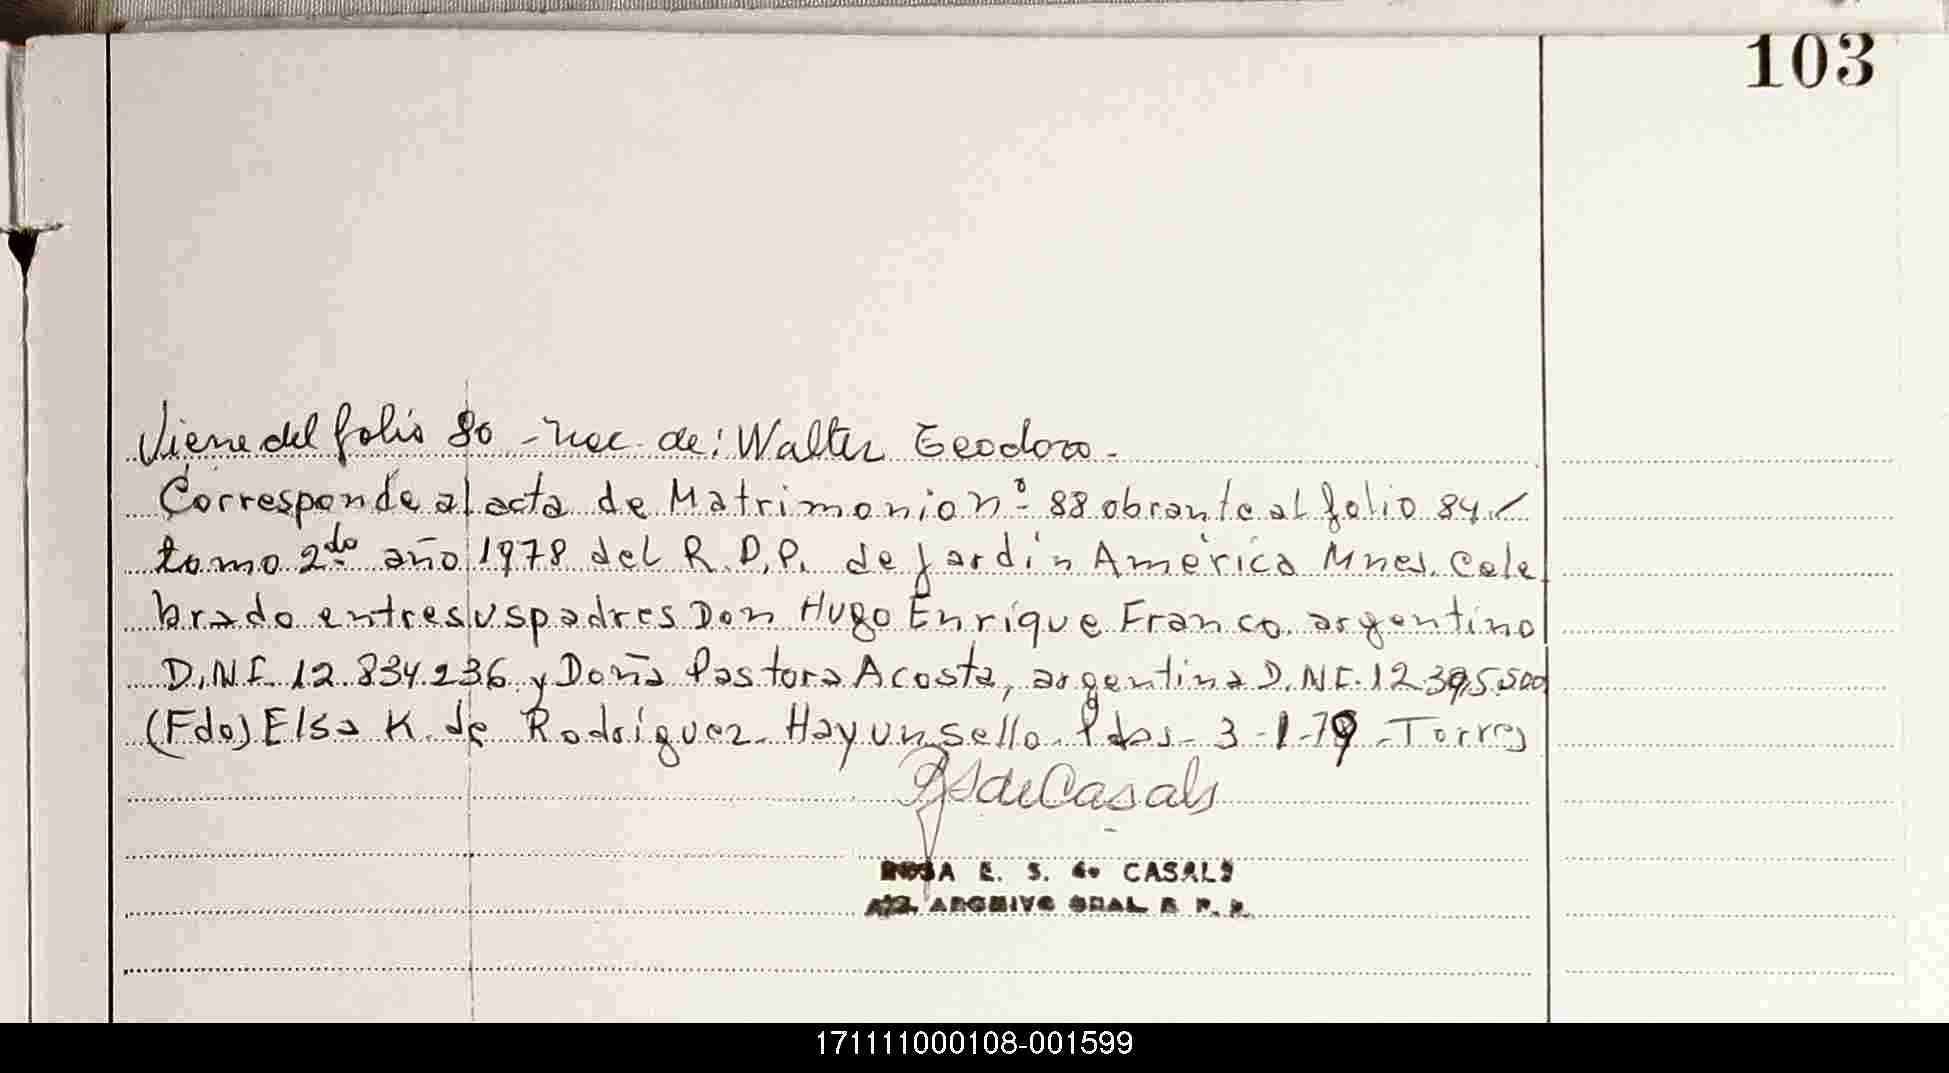 103
Viene del folio 80 - Nac. de: Walter Teodoro.
Corresponde al acta de Matrimonio nº 88 obrante al folio 84
tomo 2do. año 1978 del R.D.P. de Jardín América Mnes. Cele
brado entre sus padres Don Hugo Enrique Franco argentino
D.N.I. 12.834.236 y Doña Pastora Acosta, argentina D.N.I. 12.395.500
(Fdo) Elsa K. de Rodríguez. Hay un sello. Pdas - 3-1-79 - Torres
de Casals
ROSA E. S. de CASALS
ARCHIVO GRAL R. P. P.
171111000108-001599